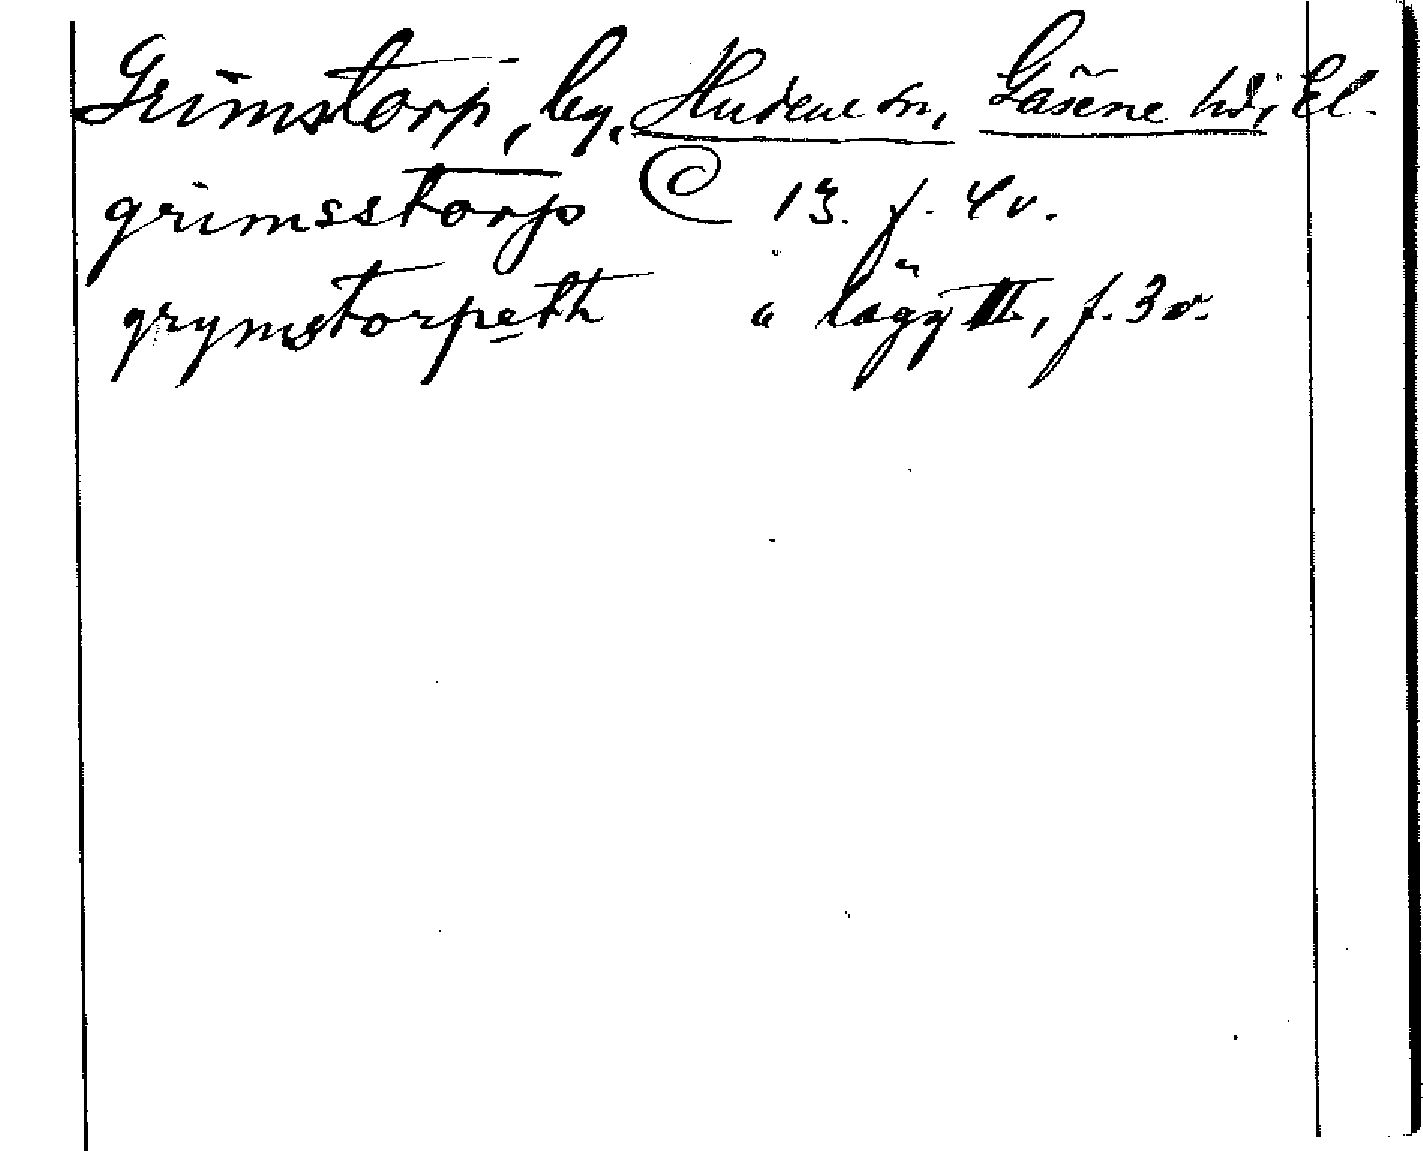 Grimstorp, by, Hudene sn, Gäsene hd, El.
grimsstorp © 13. f. 4v.
grymstorpeth " lägg II, f. 3v.